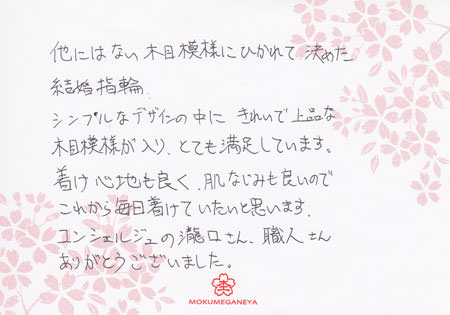 他にはない木目模様にひかれて決めた
結婚指輪.
シンプルなデザインの中にきれいで上品な
木目模様が入り、とても満足しています。
着け心地も良く、肌なじみも良いので
これから毎日着けていたいと思います.
コンシェルジュの瀧口さん、職人さん
ありがとうございました。
MOKUMEGANEYA